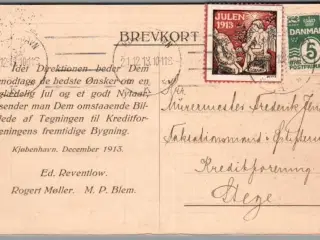 BREVKORT
JULEN
1913
DANMARK
5
21.12.13
Idet Direktionen beder Dem
modtage de bedste Ønsker om en
glædelig Jul og et godt Nytaar,
sender man Dem omstaaende Bil-
lede af Tegningen til Kreditfor-
eningens fremtidige Bygning.
Kjøbenhavn. December 1913.
Ed. Reventlow.
Rogert Møller. M. P. Blem.
Murermester Frederik
Taxationsmand
Kreditforening
Stege